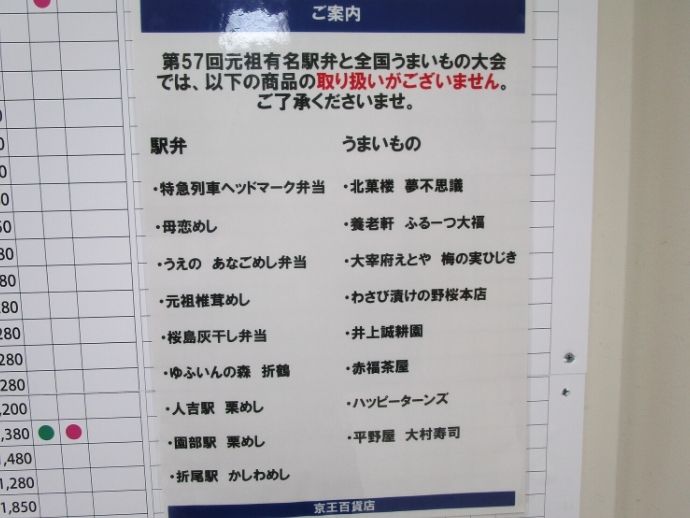 ご案内
第57回元祖有名駅弁と全国うまいもの大会
では、以下の商品の取り扱いがございません。
ご了承くださいませ。
駅弁
・特急列車ヘッドマーク弁当
・母恋めし
・うえの あなごめし弁当
・元祖椎茸めし
・桜島灰干し弁当
・ゆふいんの森 折鶴
・人吉駅 栗めし
・園部駅 栗めし
・折尾駅 かしわめし
うまいもの
・北菓楼 夢不思議
・養老軒 ふるーつ大福
・大宰府えとや 梅の実ひじき
・わさび漬けの野桜本店
・井上誠耕園
・赤福茶屋
・ハッピーターンズ
・平野屋 大村寿司
京王百貨店
,280
,280
,200
,380
1,480
1,280
1,850